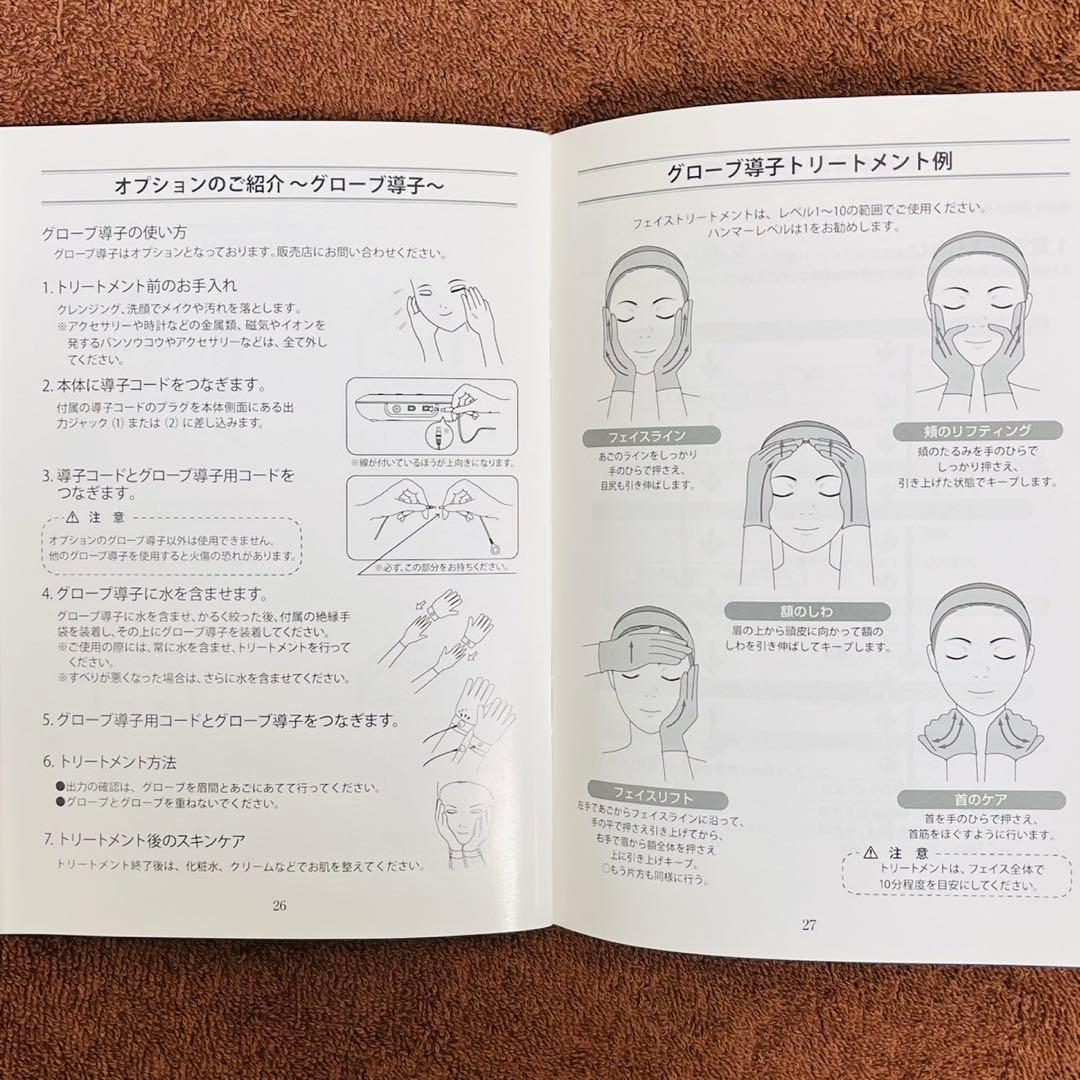 オプションのご紹介 ～グローブ導子～
グローブ導子の使い方
グローブ導子はオプションとなっております。販売店にお問い合わせください。
1. トリートメント前のお手入れ
クレンジング、洗顔でメイクや汚れを落とします。
※アクセサリーや時計などの金属類、磁気やイオンを
発するバンソウコウやアクセサリーなどは、全て外し
てください。
2. 本体に導子コードをつなぎます。
付属の導子コードのプラグを本体側面にある出
力ジャック (1) または (2) に差し込みます。
※線が付いているほうが上向きになります。
3. 導子コードとグローブ導子用コードを
つなぎます。
⚠ 注 意
オプションのグローブ導子以外は使用できません。
他のグローブ導子を使用すると火傷の恐れがあります。
※必ず、この部分をお持ちください。
4. グローブ導子に水を含ませます。
グローブ導子に水を含ませ、かるく絞った後、付属の絶縁手
袋を装着し、その上にグローブ導子を装着してください。
※ご使用の際には、常に水を含ませ、トリートメントを行って
ください。
※すべりが悪くなった場合は、さらに水を含ませてください。
5. グローブ導子用コードとグローブ導子をつなぎます。
6. トリートメント方法
●出力の確認は、グローブを眉間とあごにあてて行ってください。
●グローブとグローブを重ねないでください。
7. トリートメント後のスキンケア
トリートメント終了後は、化粧水、クリームなどでお肌を整えてください。
26
グローブ導子トリートメント例
フェイストリートメントは、レベル1～10の範囲でご使用ください。
ハンマーレベルは1をお勧めします。
フェイスライン
あごのラインをしっかり
手のひらで押さえ、
目尻も引き伸ばします。
頬のリフティング
頬のたるみを手のひらで
しっかり押さえ、
引き上げた状態でキープします。
額のしわ
眉の上から頭皮に向かって額の
しわを引き伸ばしてキープします。
フェイスリフト
左手であごからフェイスラインに沿って、
手の平で押さえ引き上げてから、
右手で眉から額全体を押さえ
上に引き上げキープ。
○もう片方も同様に行う。
首のケア
首を手のひらで押さえ、
首筋をほぐすように行います。
⚠ 注 意
トリートメントは、フェイス全体で
10分程度を目安にしてください。
27